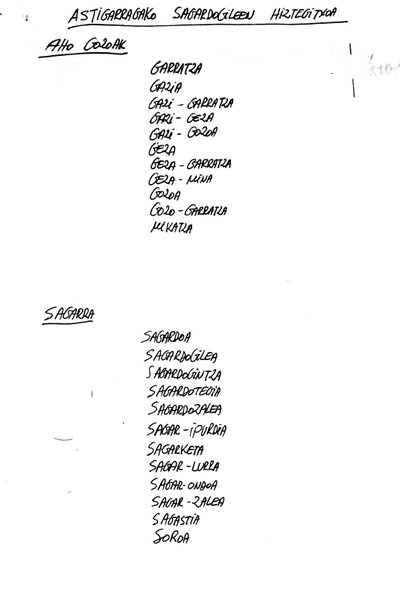 ASTIGARRAGAKO SAGARDOGILEEN HIZTEGITXOA
AHO GOZOAK
GARRATZA
GAZIA
GAZI - GARRATZA
GAZI - GEZA
GAZI - GOZOA
GEZA
GEZA - GARRATZA
GEZA - MINA
GOZOA
GOZO - GARRATZA
MIKATZA
SAGARRA
SAGARDOA
SAGARDOGILEA
SAGARDOGINTZA
SAGARDOTEGIA
SAGARDOZALEA
SAGAR - IPURDIA
SAGARKETA
SAGAR - LURRA
SAGAR-ONDOA
SAGAR - ZALEA
SAGASTIA
SOROA